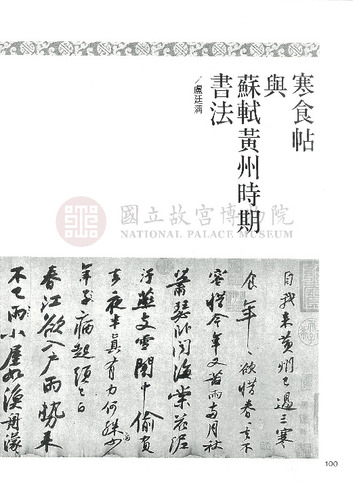 寒食帖
與
蘇軾黃州時期
書法
／盧廷清
國立故宮博物院
NATIONAL PALACE MUSEUM
自我来黄州已過三寒
食年〻欲惜春〻去不
容惜今年又苦雨兩月秋
蕭瑟卧聞海棠花泥
汙燕支雪闇中偷負
去夜半真有力何殊少
年子病起頭已白
春江欲入户雨勢来
不已雨小屋如漁舟濛
100